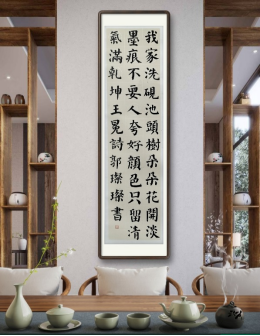 我家洗硯池頭樹朵朵花開淡
墨痕不要人夸好顏色只留清
氣滿乾坤王冕詩郭璨璨書